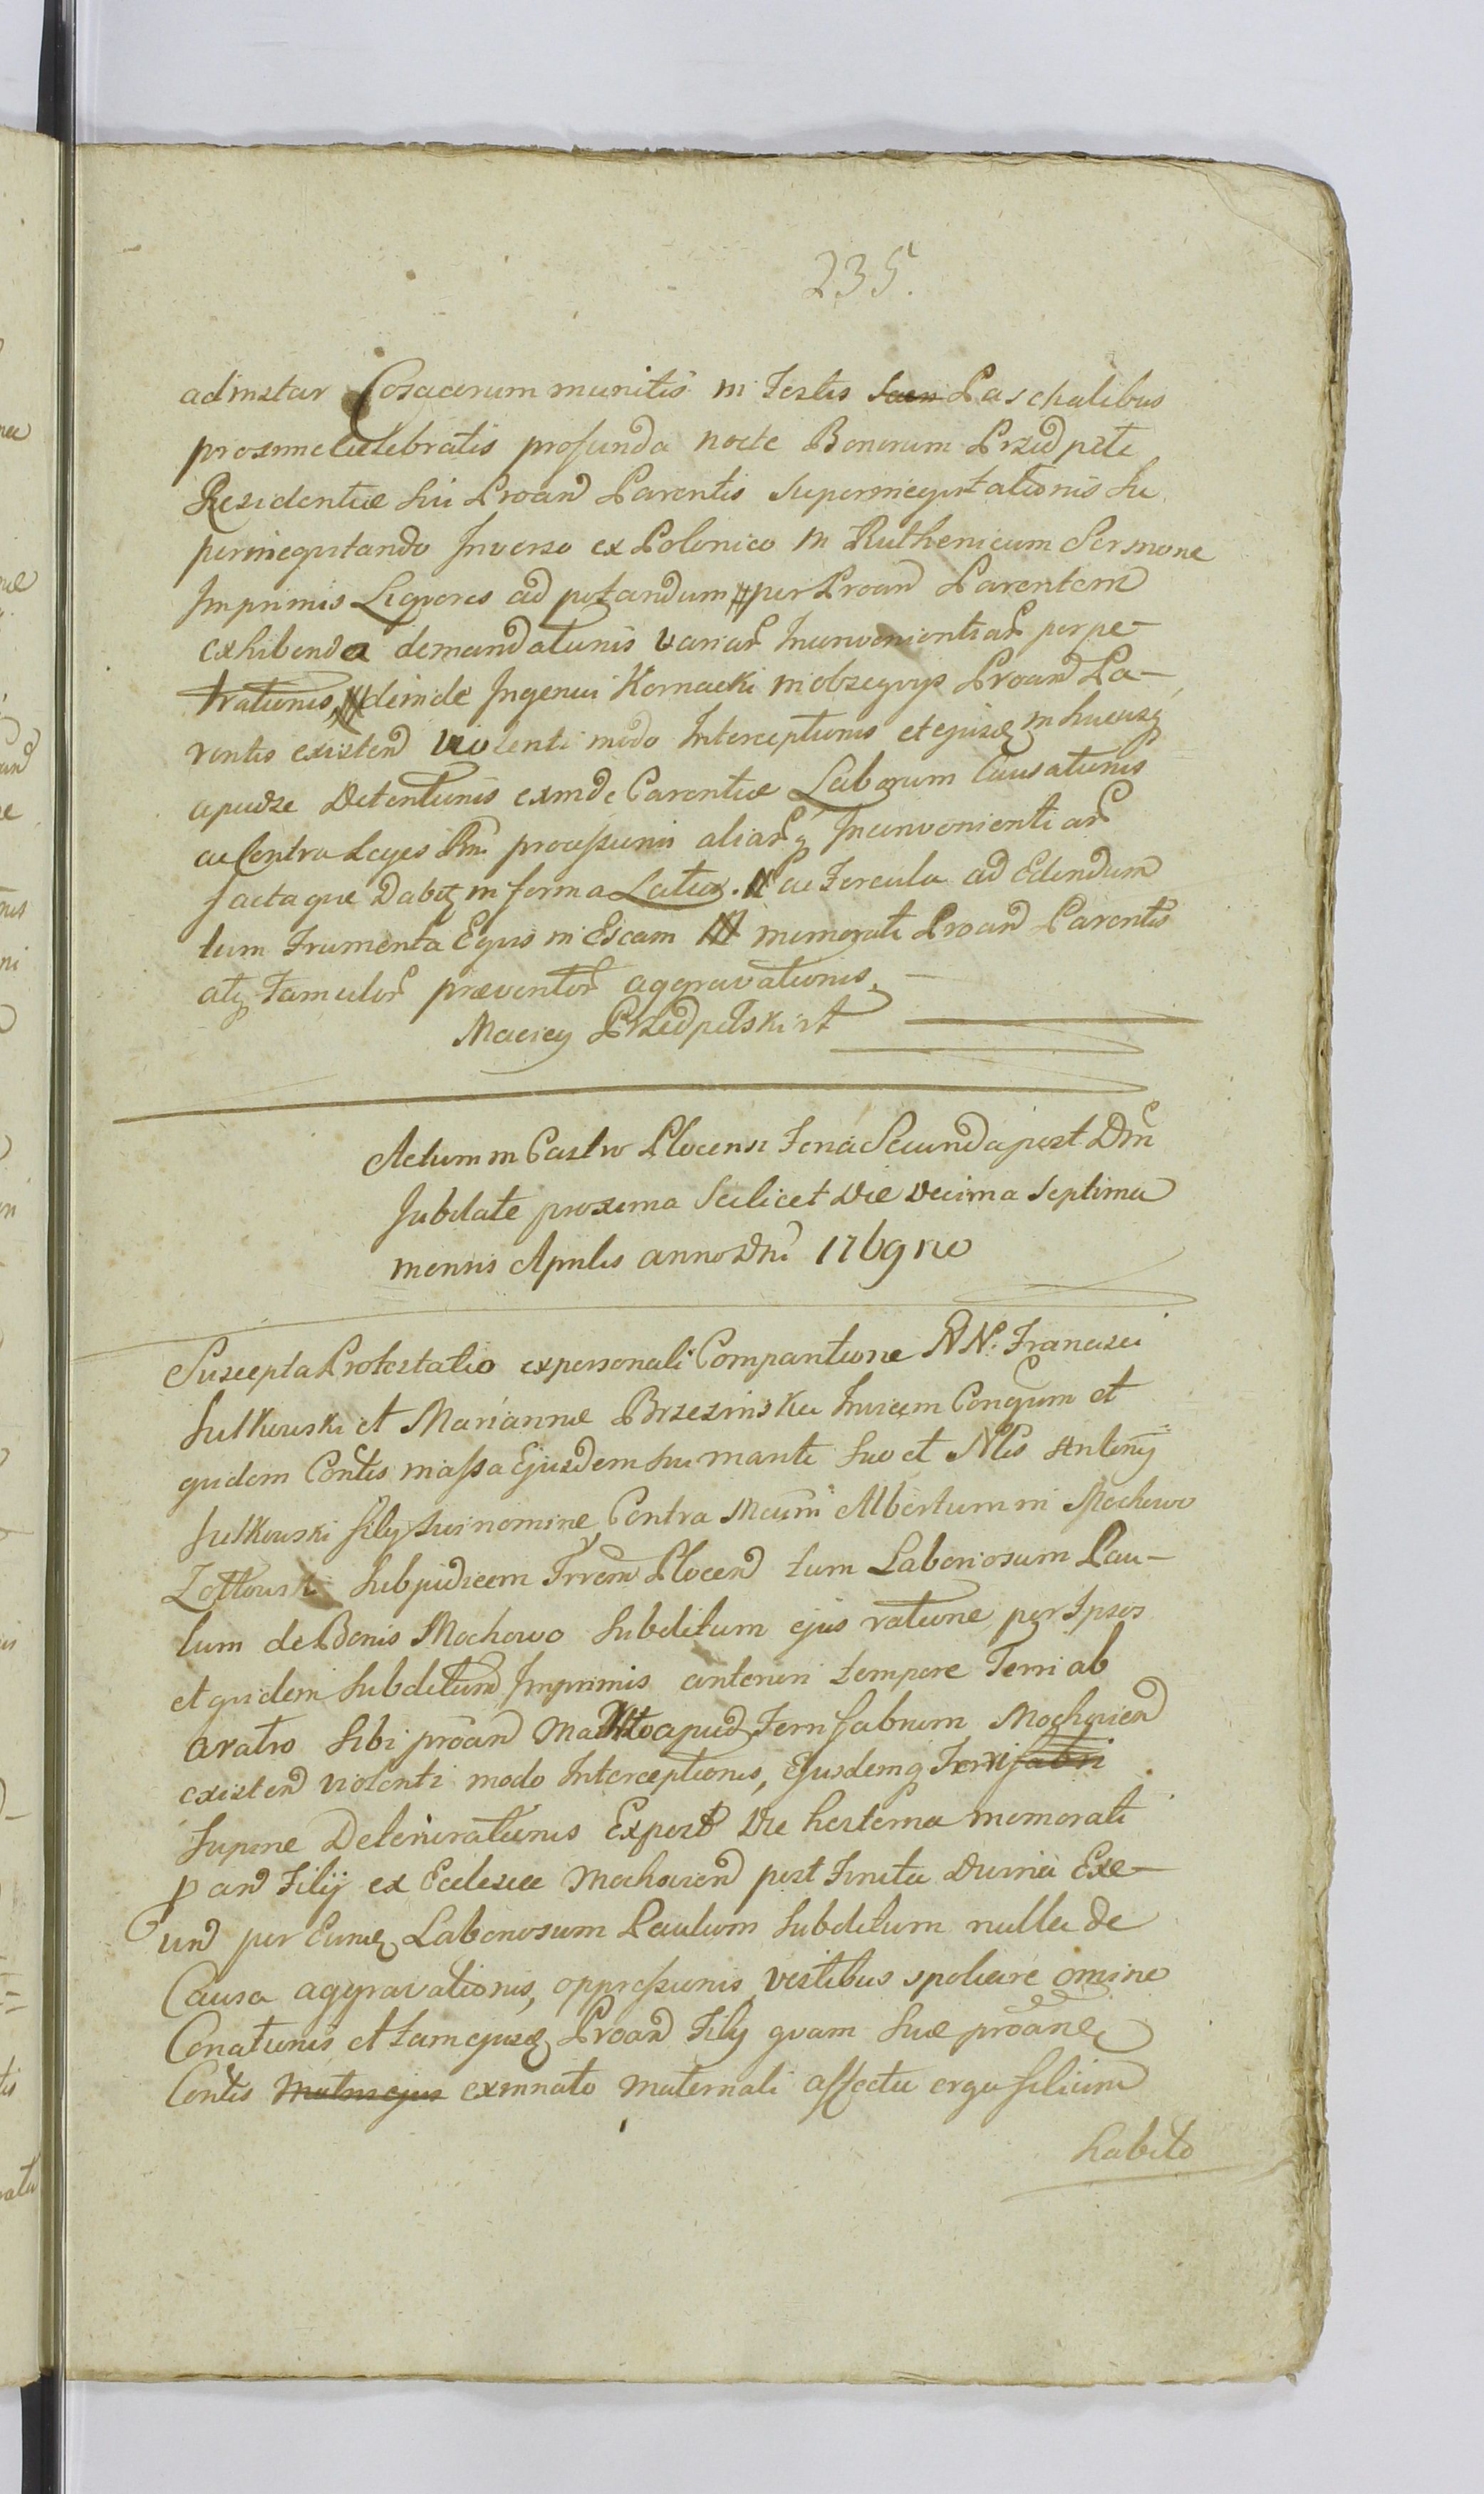 235.
adinstar Cosacorum munitis in Festis Sacri Paschalibus
proxime celebratis profunda nocte Bonorum Przedpełti
Residentiæ sui Proand Parentis superinequitationis Su
perinequitando Inverso ex Polonico in Ruthenicum Sermone
Imprimis Liquores ad potandum # per Proand Parentem
exhibenda demandationis variar Inconvenientiar perpe-
trationis, # deinde Ingenui Kornacki in obsequijs Proand Pa-
rentis existend violenti modo Interceptionis et ejusq in hucusq
apud se Detentionis exinde Carentiæ Laborum Causationis
ac Contra Leges Rni processionis aliarq Inconvenientiar
factaque Dabit in forma Latiori. # ac Fercula ad Edendum
tum Frumenta Equis in Escam memorati Proand Parentis
atq Famulor præventor aggravationis.
Maciey Przedpełski
Actum in Castro Plocensi Feria Secunda post Dnicam
Jubilate proxima scilicet Die Decima Septima
mensis Aprilis anno Dni 1769no
Suscepta Protestatio ex personali Comparitione NN. Francisci
Sutkowski et Mariannæ Brzezinska Invicem Conjgum et
quidem Contis in assa Ejusdem sui mariti suo et Nlis Antonij
Sutkowski filij sui nomine, Contra Mcum Albertum in Mochowo
Zołtowski Subjudicem Trrem Plocend tum Laboriosum Pau-
lum de Bonis Mochowo Subditum ejus ratione per Ipsos
et quidem Subditum Imprimis anteriori tempore Ferri ab
aratro Sibi proand Marito apud Ferri fabrum Mochovien
existend violenti modo Interceptionis, Ejusdemq Ferri fabri
Supine Deteriorationis Expost Die hesterna memorati
P and Filij ex Eclesia Mochovien post Finita Divina Exe-
und per Eumq Laboriosum Paulum Subditum nulla de
Causa aggravationis, oppressionis, vestibus spoliare omine
Conationis et tam ejusq Proand Filij quam Suæ proane
Contis Matris ejus ex innato maternali affectu erga filium
habito